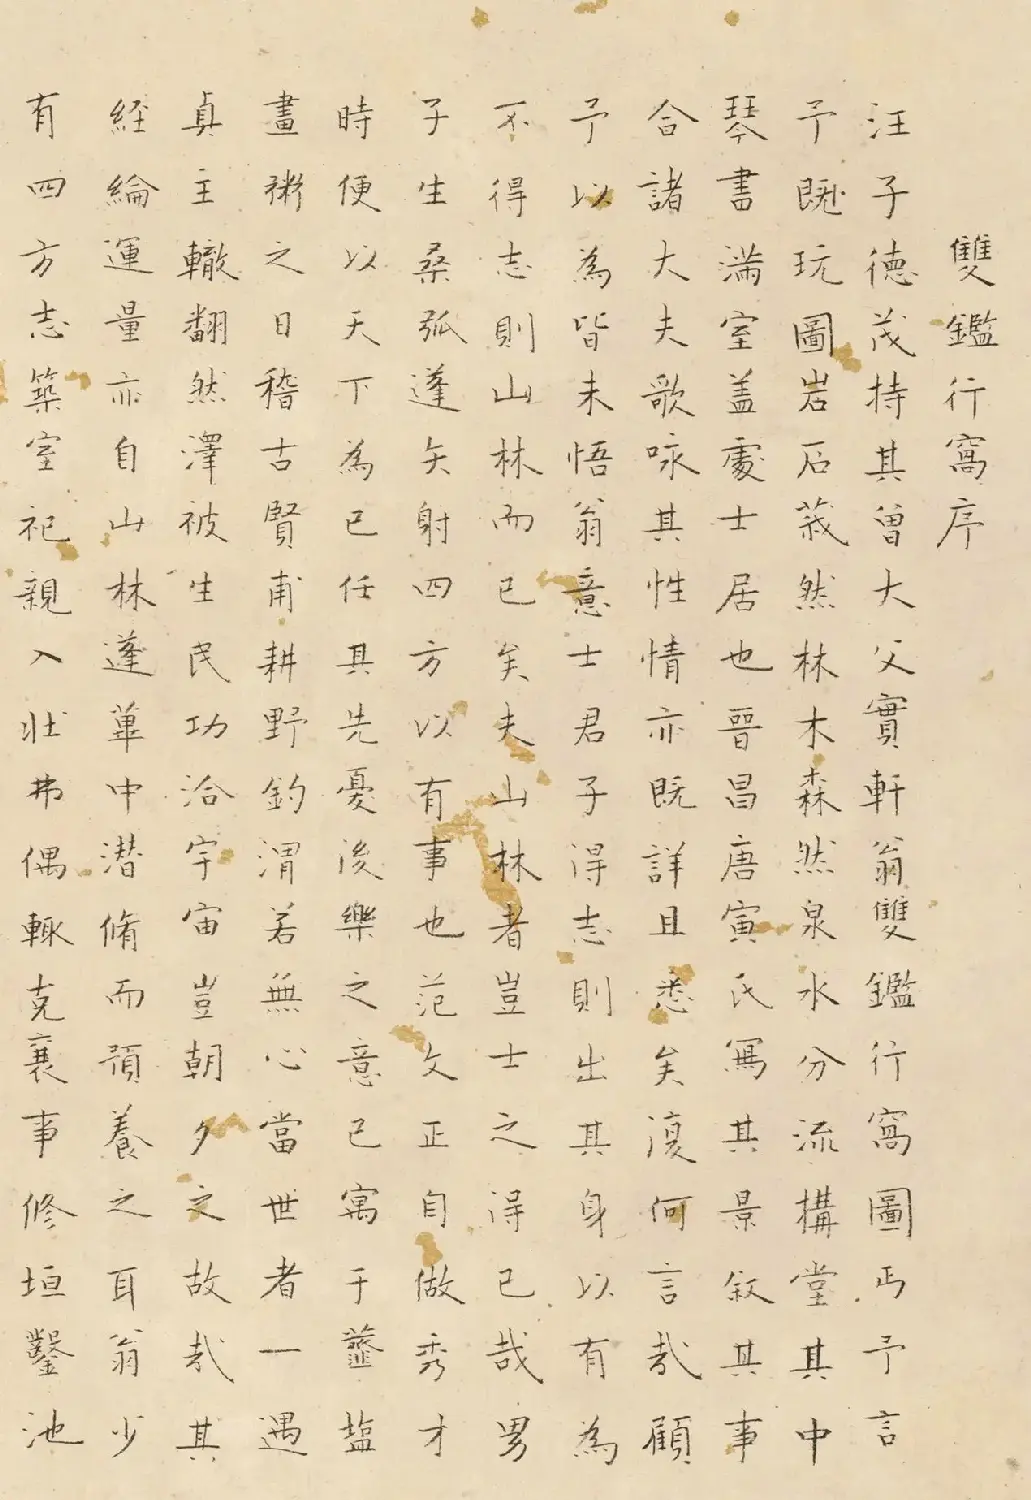 雙鑑行窩序
汪子德茂持其曾大父實軒翁雙鑑行窩圖丐予言
予既玩圖岩石峩然林木森然泉水分流構堂其中
琴書滿室盖處士居也晋昌唐寅氏寫其景叙其事
合諸大夫歌咏其性情亦既詳且悉矣復何言哉顧
予以為皆未悟翁意士君子得志則出其身以有為
不得志則山林而已矣夫山林者豈士之得已哉男
子生桑弧蓬矢射四方以有事也范文正自做秀才
時便以天下為已任其先憂後樂之意已寓于虀塩
畫粥之日稽古賢甫耕野釣渭若無心當世者一遇
真主轍翻然澤被生民功洽宇宙豈朝夕之故哉其
經綸運量亦自山林蓬蓽中潜脩而預養之耳翁少
有四方志築室祀親入壯弗偶輙克襄事修垣鑿池